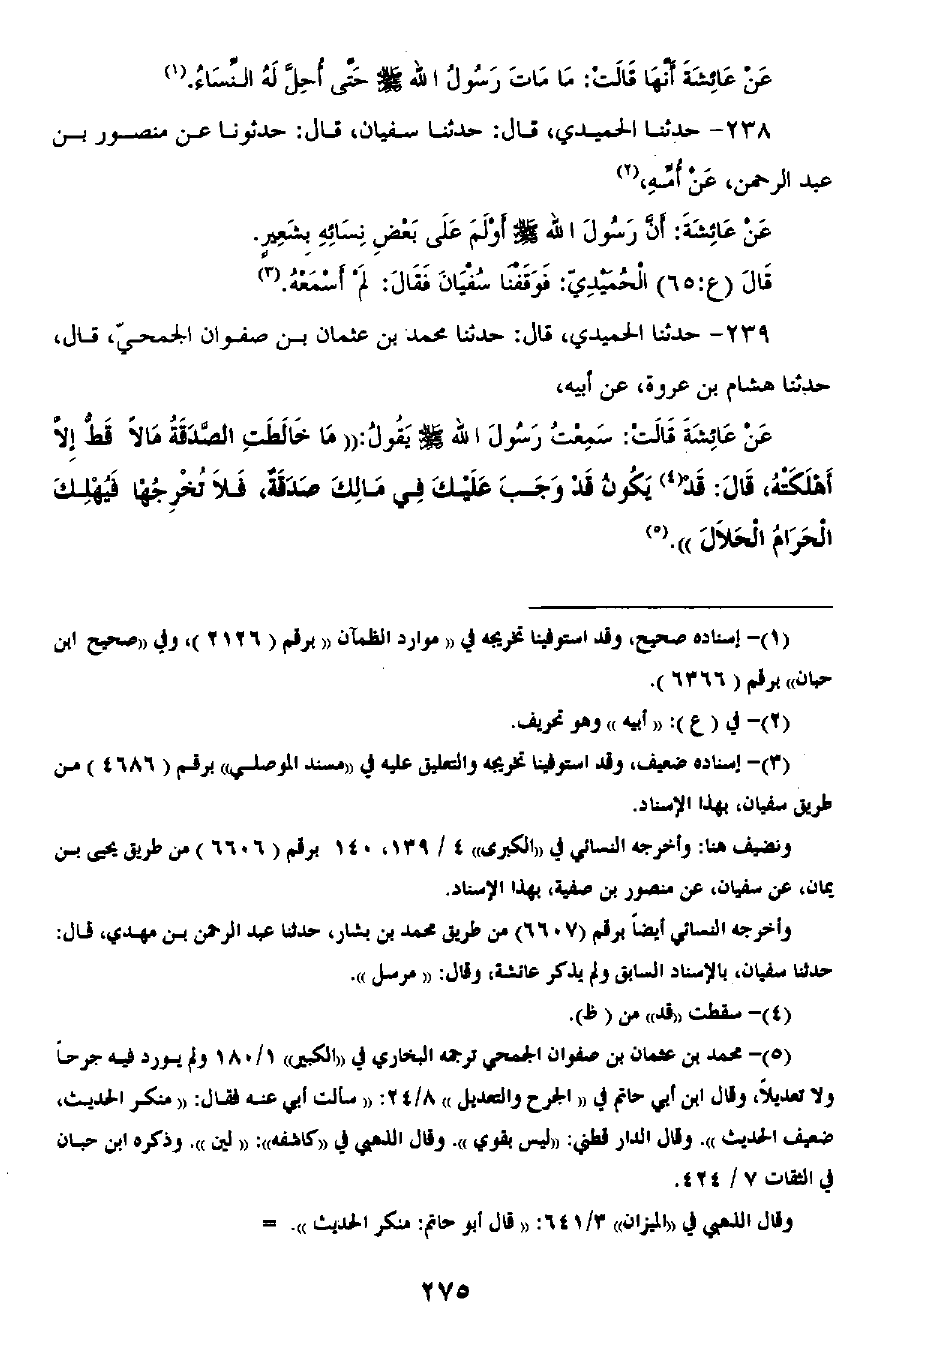 عَنْ عَائِشَةَ أَنَّهَا قَالَتْ: مَا مَاتَ رَسُولُ الله ﷺ حَتَّى أُحِلَّ لَهُ النِّسَاءُ.(١)
٢٣٨- حدثنا الحميدي، قال: حدثنا سفيان، قال: حدثونا عن منصور بن
عبد الرحمن، عَنْ أُمِّهِ،(٢)
عَنْ عَائِشَةَ: أَنَّ رَسُولَ الله ﷺ أَوْلَمَ عَلَى بَعْضِ نِسَائِهِ بِشَعِيرٍ.
قَالَ (ع:٦٥) الْحُمَيْدِيّ: فَوَقَفْنَا سُفْيَانَ فَقَالَ: لَمْ أَسْمَعْهُ.(٣)
٢٣٩- حدثنا الحميدي، قال: حدثنا محمد بن عثمان بن صفوان الجمحيّ، قال،
حدثنا هشام بن عروة، عن أبيه،
عَنْ عَائِشَةَ قَالَتْ: سَمِعْتُ رَسُولَ الله ﷺ يَقُولُ:(( مَا خَالَطَتِ الصَّدَقَةُ مَالاً قَطُّ إِلاَّ
أَهْلَكَتْهُ، قَالَ: قَدْ(٤) يَكُونُ قَدْ وَجَبَ عَلَيْكَ فِي مَالِكَ صَدَقَةٌ، فَلاَ تُخْرِجُهَا فَيُهْلِكَ
الْحَرَامُ الْحَلاَلَ )).(٥)
(١)- إسناده صحيح، وقد استوفينا تخريجه في (( موارد الظمآن (( برقم ( ٢١٢٦ )، وفي ((صحيح ابن
حبان)) برقم ( ٦٣٦٦ ).
(٢)- في ( ع ): (( أبيه )) وهو تحريف.
(٣)- إسناده ضعيف، وقد استوفينا تخريجه والتعليق عليه في ((مسند الموصلي)) برقم ( ٤٦٨٦ ) من
طريق سفيان، بهذا الإسناد.
ونضيف هنا: وأخرجه النسائي في ((الكبرى)) ٤ / ١٣٩، ١٤٠ برقم ( ٦٦٠٦ ) من طريق يحيى بن
يمان، عن سفيان، عن منصور بن صفية، بهذا الإسناد.
وأخرجه النسائي أيضاً برقم (٦٦٠٧) من طريق محمد بن بشار، حدثنا عبد الرحمن بن مهدي، قال:
حدثنا سفيان، بالإسناد السابق ولم يذكر عائشة، وقال: (( مرسل )).
(٤)- سقطت ((قد)) من ( ظ).
(٥)- محمد بن عثمان بن صفوان الجمحي ترجمه البخاري في ((الكبير)) ١/ ١٨٠ ولم يورد فيه جرحاً
ولا تعديلاً، وقال ابن أبي حاتم في (( الجرح والتعديل )) ٢٤/٨: (( سألت أبي عنه فقال: (( منكر الحديث،
ضعيف الحديث )). وقال الدار قطني: ((ليس بقوي )). وقال الذهبي في ((كاشفه)): (( لين )). وذكره ابن حبان
في الثقات ٧ / ٤٢٤.
وقال الذهبي في ((الميزان)) ٦٤١/٣: (( قال أبو حاتم: منكر الحديث )). =
٢٧٥